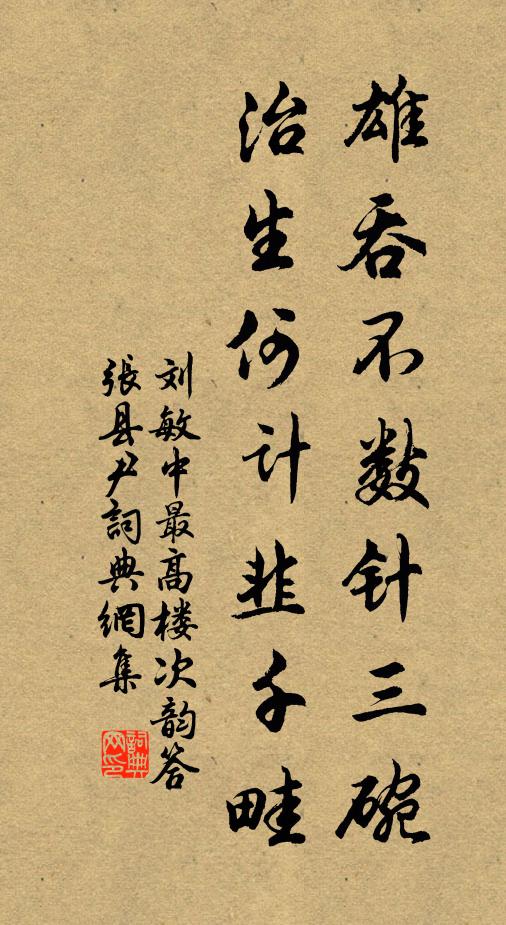 雄吞不数针三碗
治生何计韭千畦
刘敏中最高楼次韵答
張县尹詞典網集
詞典网印